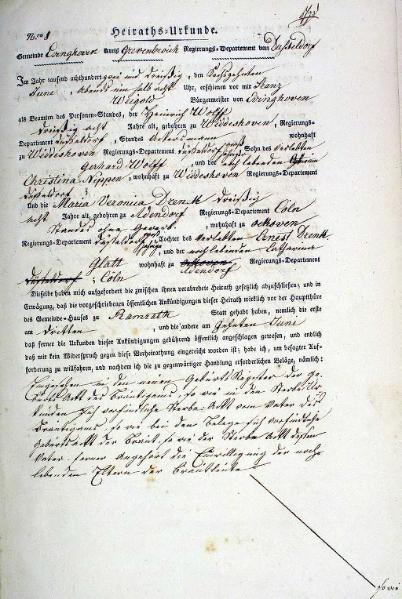 No 8
Heiraths-Urkunde.
Gemeinde Evinghoven Kreis Grevenbroich Regierungs-Departement von Düsseldorf
Im Jahr tausend achthundert zwei und dreißig, den
Juni, Abends um halb acht Uhr, erschienen vor mir Franz
Weigold Bürgermeister von Evinghoven
als Beamten des Personen-Standes, der Heinrich Wolff
dreißig acht Jahre alt, gebohren zu Wideshoven, Regierungs-
Departement Düsseldorf, Standes wohnhaft
zu Wideshoven Regierungs-Departement Düsseldorf Sohn des verlebten
Gerhard Wolff und der noch lebenden
Christina Pippen, wohnhaft zu Wideshoven Regierungs-Departement
Düsseldorf;
Und die Maria Veronica Drenk dreißig
acht Jahre alt, gebohren zu Udendorf Regierungs-Departement Cöln
Standes ohne Gewerb wohnhaft zu Oekoven
Regierungs-Departement Düsseldorf Tochter des verlebten Ernest Drenk
und der noch lebenden Catharina
Glatt wohnhaft zu Udendorf Regierungs-Departement
Cöln
Dieselbe haben mich aufgefordert die zwischen ihnen verabredete Heirath gesetzlich abzuschließen; und in
Erwägung, daß die vorgeschriebenen öffentlichen Ankündigungen dieser Heirath wirklich vor der Hauptthüre
des Gemeinde-Hauses zu Ramrath Statt gehabt haben, nemlich die erste
am dritten und die andere am zehnten Juni
daß ferner die Urkunden dieser Ankündigungen gebührend öffentlich angeschlagen gewesen, und endlich
daß mir kein Widerspruch gegen diese Verheirathung eingereicht worden ist; habe ich, um besagter Auf-
forderung zu willfahren, und nachdem ich die zu gegenwärtiger Handlung erforderlichen Beläge, nämlich:
in den neuen Geburts Register der Ge-
burts Akt des Bräutigams, so wie in den Sterbe Ur-
kunden sich vorfindliche Sterbe Akt vom Vater des
Bräutigams, so wie bei den Belege sich vorfindliche
Geburts Akt der Braut, so wie der Sterbe Akt deßen
Vater, ferner angehört die Einwilligung der noch
lebenden Eltern der Brautleute
so wie